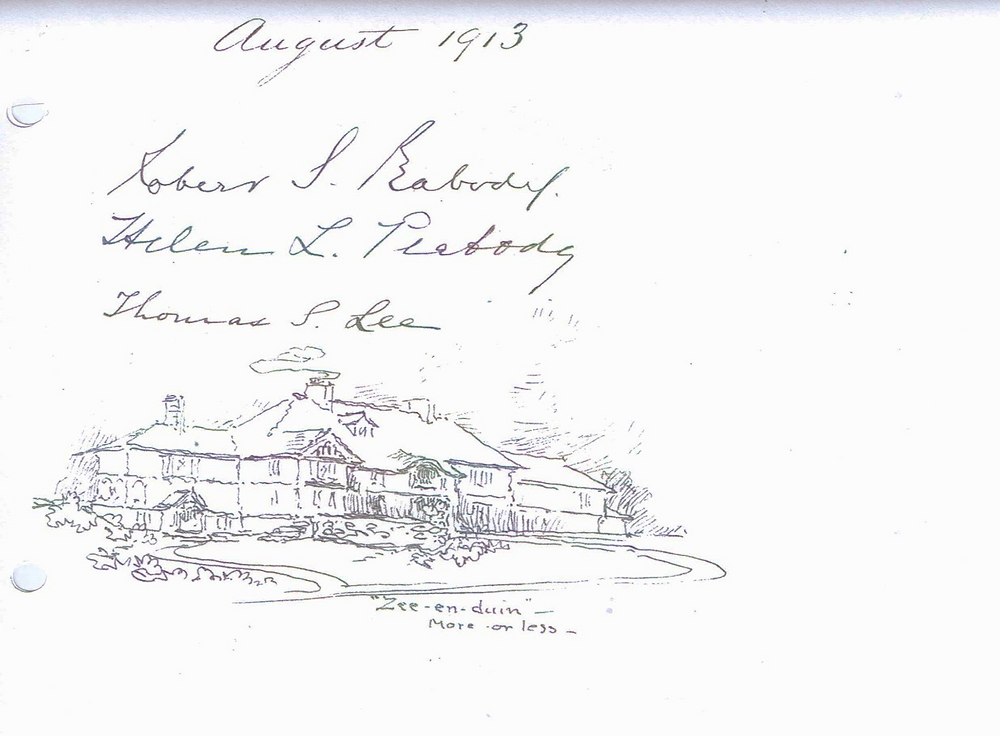 August 1913
Robert S. Peabody.
Helen L. Peabody
Thomas S. Lee
"Zee-en-duin" —
More or less —